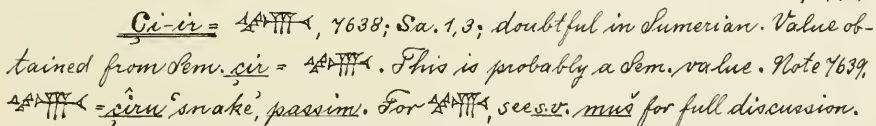 Çi-ir = 𒈲, 7638; Sa. 1, 3; doubtful in Sumerian. Value ob-
tained from Sem. çir = 𒈲. This is probably a Sem. value. Note 7639,
𒈲 = çîru 'snake', passim. For 𒈲, see s.v. muš for full discussion.